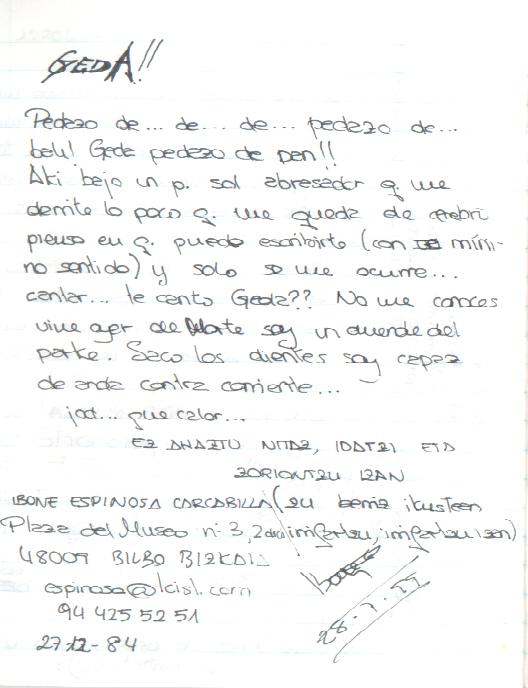 GEDA!!
Pedazo de... de... de... pedazo de...
bah! Geda pedazo de pan!!
Aki bajo un p. sol abrasador q. me
derrite lo poco q. me queda de cerebri
pienso en q. puedo escribirte (con mími-
no sentido) y solo se me ocurre...
cantar... te canto Geda?? No me conoces
vine ayer de Marte soy un duende del
parke. Saco los dientes soy capaz
de andar contra corriente...
jod... que calor...
EZ AHAZTU NITAZ, IDATZI ETA
ZORIONTZU IZAN
IBONE ESPINOSA CARCABILLA (zu berriz ikusteen
Plaza del Museo nº 3, 2 dcha
48009 BILBO BIZKAIA
espinosa@lcisl.com
94 425 52 51
27-12-84
28-7-99